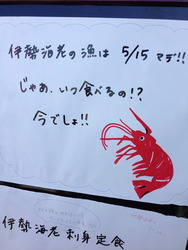 伊勢海老の漁は 5/15 マデ!!
じゃあ、いつ食べるの!?
今でしょ!!
伊勢海老刺身定食